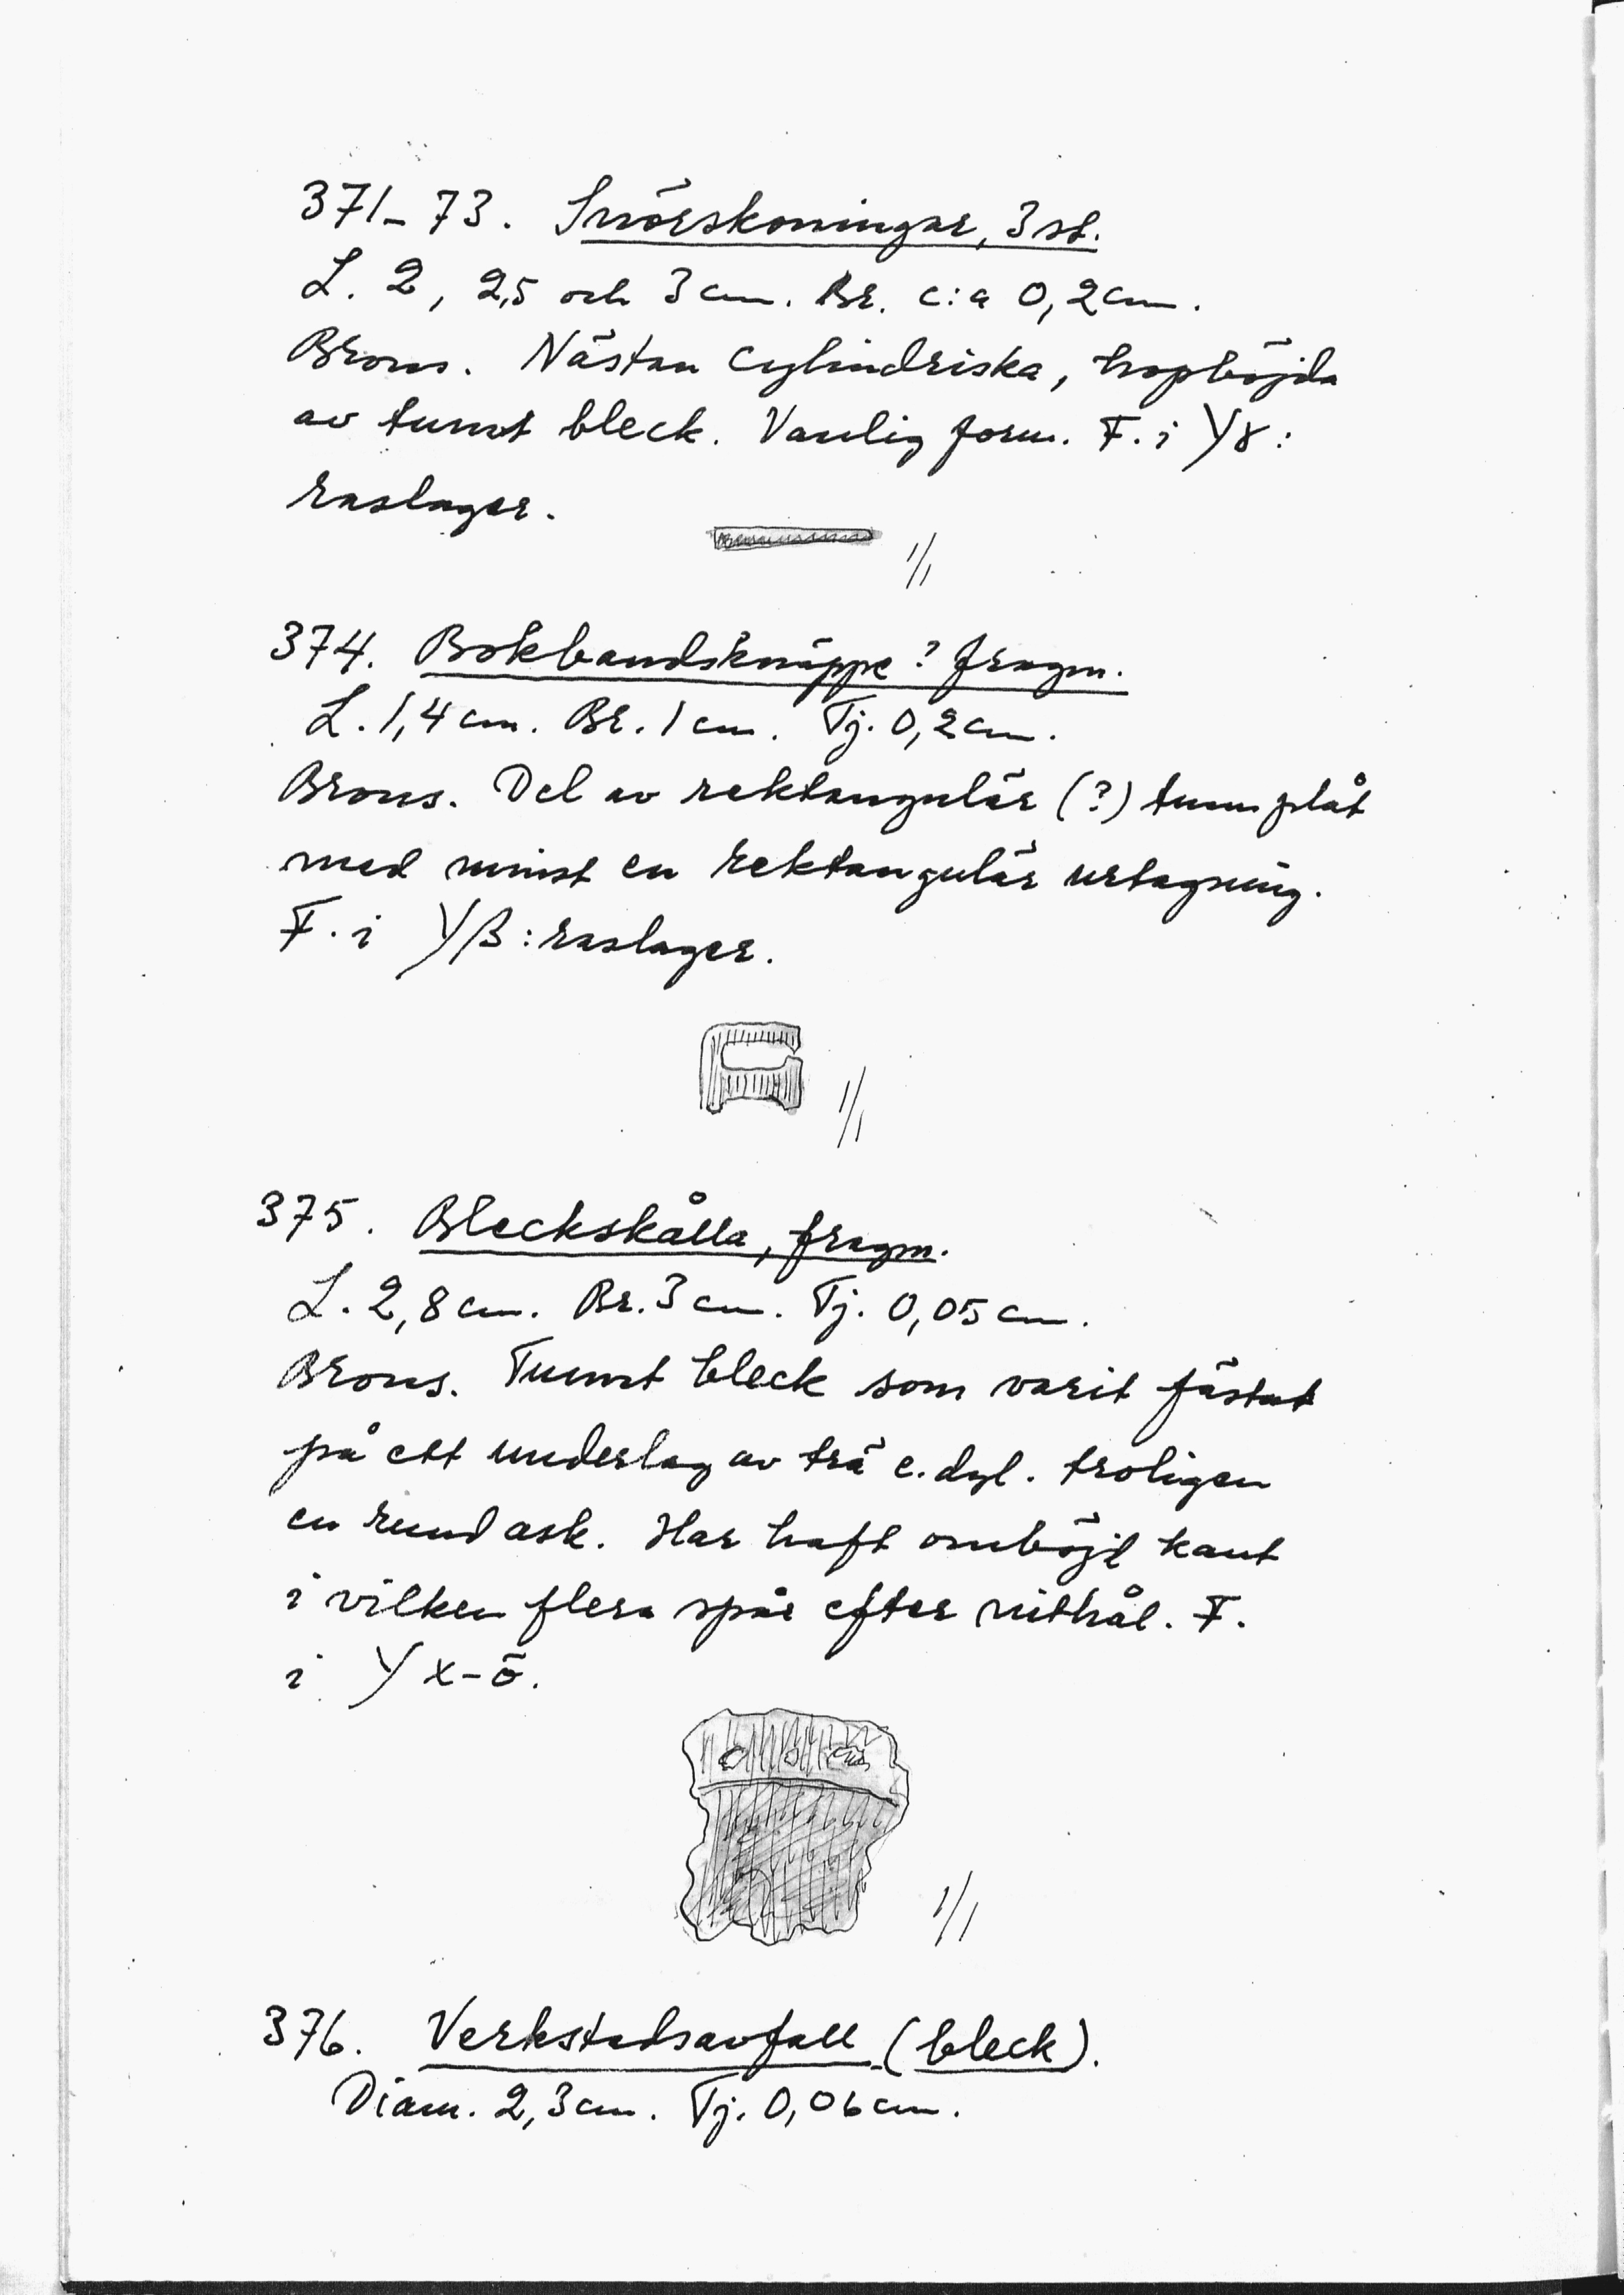 371-73. Snörskoningar, 3 st.
L. 2, 2,5 och 3 cm. Br. c:a 0,2 cm.
Brons. Nästan cylindriska, hopböjda
av tunnt bleck. Vanlig form. F. i Yγ:
raslager.
1/1
374. Bokbandsknäppe? fragm.
L. 1,4 cm. Br. 1 cm. Tj. 0,2 cm.
Brons. Del av rektangulär (?) tunn plåt
med minst en rektangulär urtagning.
F. i Yβ: raslager.
1/1
375. Bleckskålla, fragm.
L. 2,8 cm. Br. 3 cm. Tj. 0,05 cm.
Brons. Tunnt bleck som varit fästat
på ett underlag av trä e. dyl. troligen
en rund ask. Har haft omböjd kant
i vilken flera spår efter nithål. F.
i Y x-ö.
1/1
376. Verkstadsavfall (bleck).
Diam. 2,3 cm. Tj. 0,06 cm.